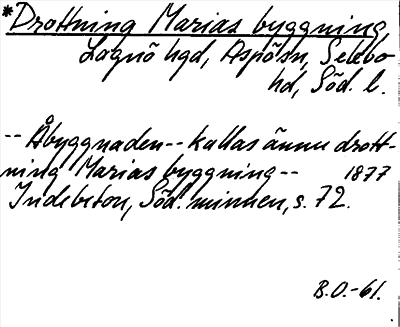 *Drottning Marias byggning
Lagnö hgd, Aspösn, Selebo
hd, Söd. l.
-- Åbyggnaden -- kallas ännu drott-
ning Marias byggning -- 1877
Indebetou, Söd. minnen, s. 72.
B.O.-61.